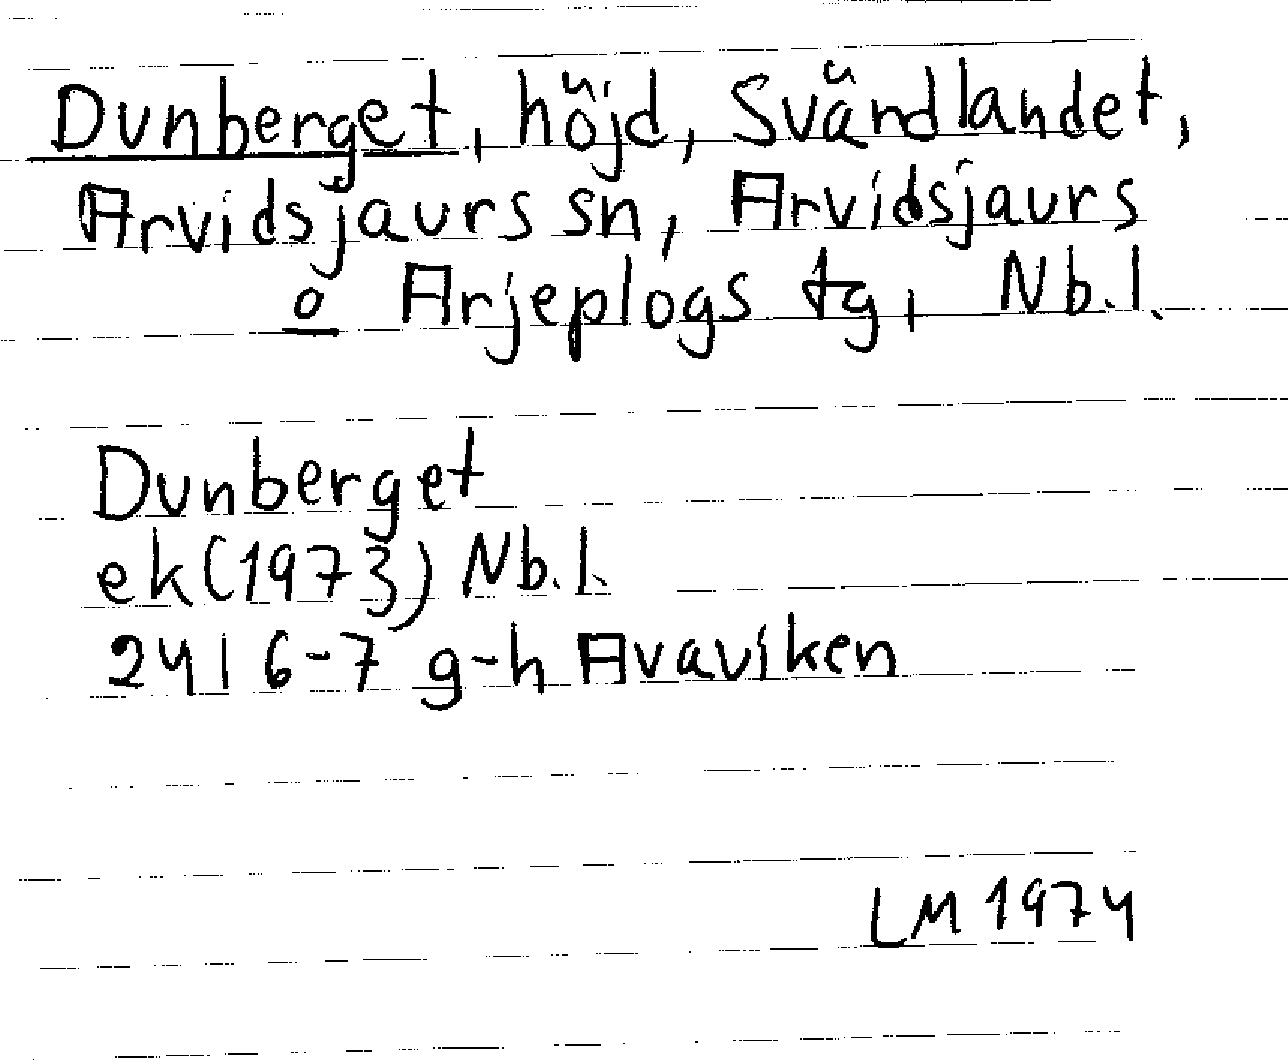 Dunberget, höjd, Svärdlandet,
Arvidsjaurs sn, Arvidsjaurs
o Arjeplogs tg, Nb.l.
Dunberget
ek(1973) Nb.l.
24I 6-7 g-h Avaviken
LM 1974